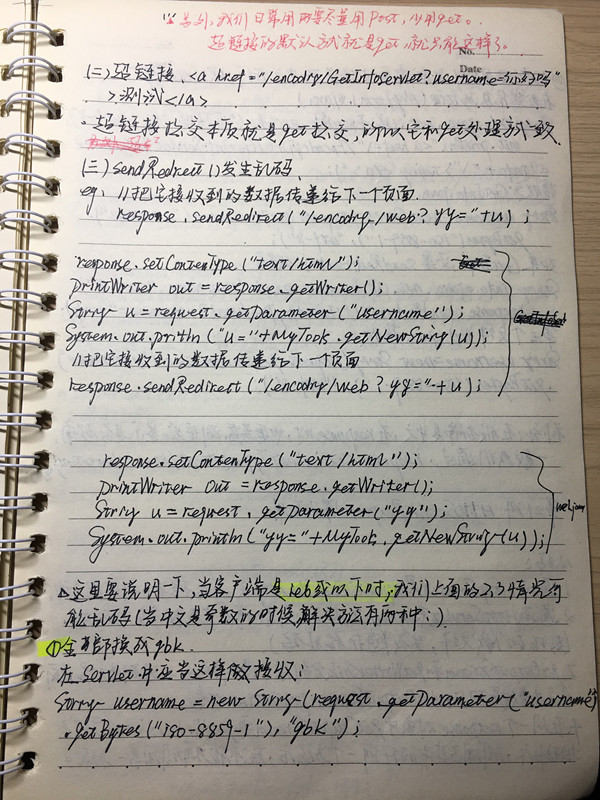 我们日常用时要尽量用post,少用get。
超链接的默认方式就是get,就只能这样了。
No.
Date
(二)超链接.<a href="/encoding/GetInfoServlet?username=你好吗"
>测试</a>
·超链接提交本质就是get提交,所以它和get处理方式一致.
(三)sendRedirect()发生乱码.
eg. //把它接收到的数据传递给下一个页面.
response.sendRedirect("/encoding/web?yy="+u);
response.setContenType("text/html");
printWriter out=response.getWriter();
String u=request.getParameter("username");
System.out.println("u="+MyTools.getNewString(u));
//把它接收到的数据传递给下一个页面
response.sendRedirect("/encoding/web?yy="+u);
response.setContenType("text/html");
printWriter out=response.getWriter();
String u=request.getparameter("yy");
System.out.println("yy="+MyTools.getNewString(u));
△这里要说明一下,当客户端是ie6或以下时,我们上面的2.3.4情况可
能乱码(当中文是奇数的时候,解决方法有两种:)
①全部换成gbk.
在Servlet中应当这样做接收:
String username=new String(request.getParameter("username")
.getBytes("iso-8859-1"),"gbk");